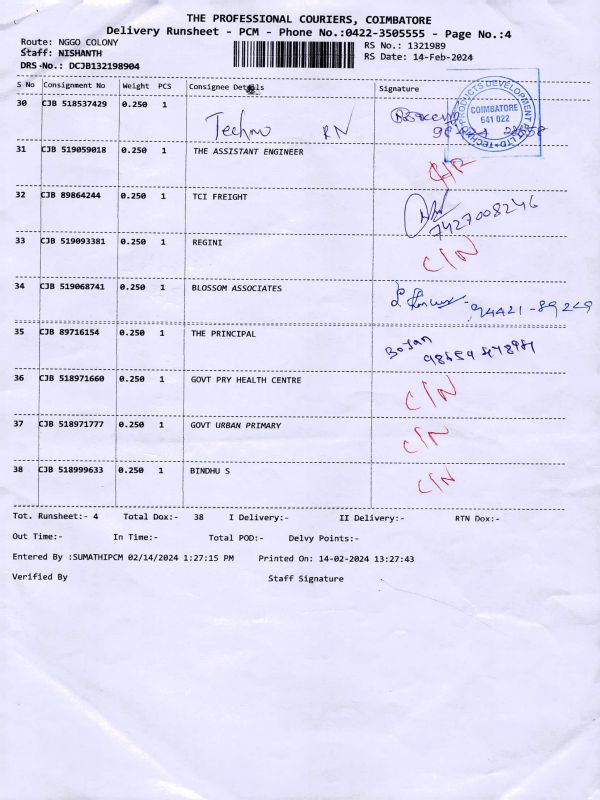 THE PROFESSIONAL COURIERS, COIMBATORE
Delivery Runsheet - PCM - Phone No.:0422-3505555 - Page No.:4
Route: NGGO COLONY
RS No.: 1321989
Staff: NISHANTH
RS Date: 14-Feb-2024
DRS No.: DCJB132198904
S No Consignment No Weight PCS Consignee Details Signature
30 CJB 518537429 0.250 1 Techno RN
PRODUCTS DEVELOPMENT
COIMBATORE
641 022
31 CJB 519059018 0.250 1 THE ASSISTANT ENGINEER
32 CJB 89864244 0.250 1 TCI FREIGHT 7427008246
33 CJB 519093381 0.250 1 REGINI C/N
34 CJB 519068741 0.250 1 BLOSSOM ASSOCIATES 94421-89269
35 CJB 89716154 0.250 1 THE PRINCIPAL Bojan
36 CJB 518971660 0.250 1 GOVT PRY HEALTH CENTRE C/N
37 CJB 518971777 0.250 1 GOVT URBAN PRIMARY C/N
38 CJB 518999633 0.250 1 BINDHU S C/N
Tot. Runsheet:- 4 Total Dox:- 38 I Delivery:- II Delivery:- RTN Dox:-
Out Time:- In Time:- Total POD:- Delvy Points:-
Entered By :SUMATHIPCM 02/14/2024 1:27:15 PM Printed On: 14-02-2024 13:27:43
Verified By Staff Signature